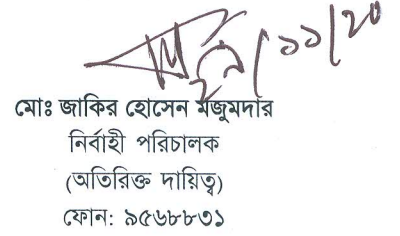 মোঃ জাকির হোসেন মজুমদার
নির্বাহী পরিচালক
(অতিরিক্ত দায়িত্ব)
ফোন: ৯৫৬৮৮৩১